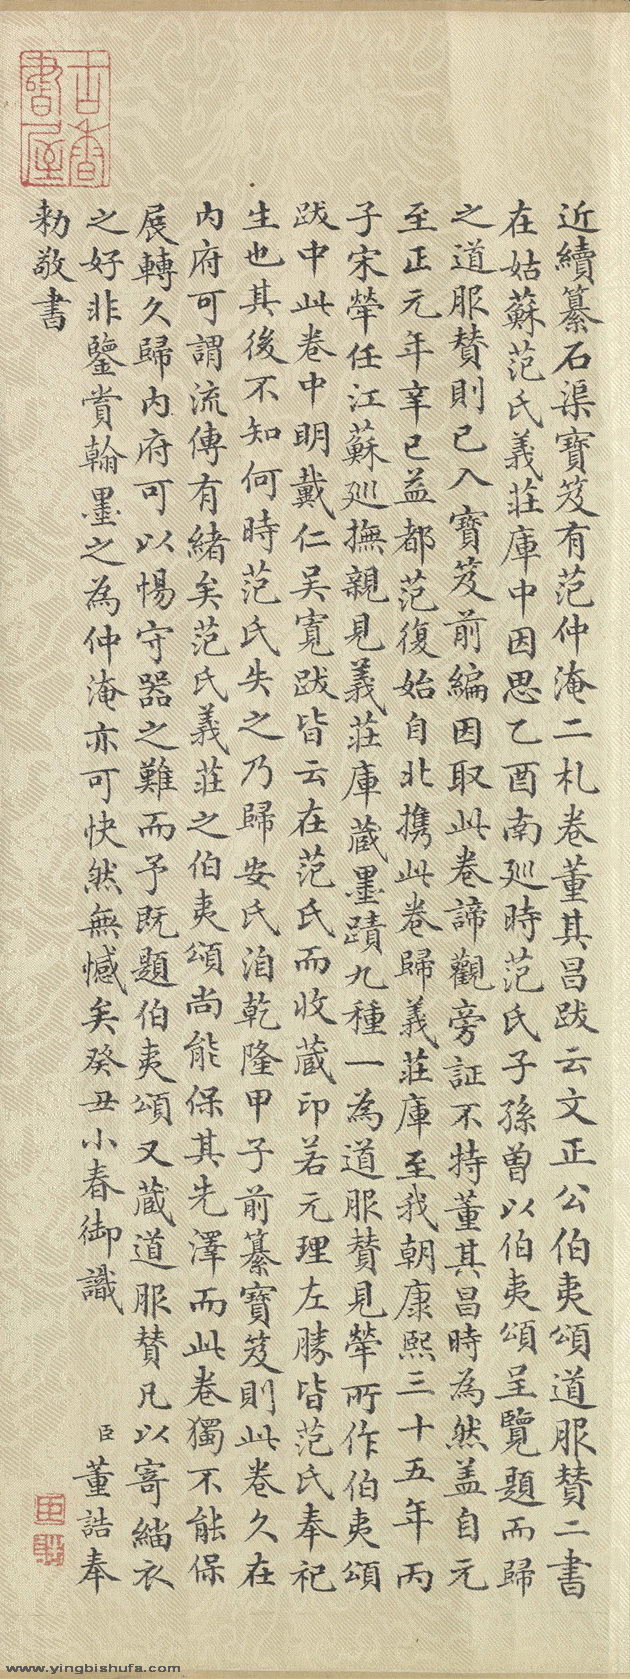 近續纂石渠寶笈有范仲淹二札卷董其昌跋云文正公伯夷頌道服贊二書
在姑蘇范氏義莊庫中因思乙酉南廵時范氏子孫曾以伯夷頌呈覽題而歸
之道服贊則已入寶笈前編因取此卷諦觀旁証不特董其昌時為然盖自元
至正元年辛巳益都范復始自北攜此卷歸義莊庫至我朝康熙三十五年丙
子宋犖任江蘇廵撫親見義莊庫藏墨蹟九種一為道服贊見犖所作伯夷頌
跋中此卷中明戴仁吴寬跋皆云在范氏而收藏印若元理左勝皆范氏奉祀
生也其後不知何時范氏失之乃歸安氏洎乾隆甲子前纂寶笈則此卷久在
内府可謂流傳有緒矣范氏義莊之伯夷頌尚能保其先澤而此卷獨不能保
展轉久歸内府可以惕守器之難而予既題伯夷頌又藏道服贊凡以寄緇衣
之好非鑒賞翰墨之為仲淹亦可快然無憾矣癸丑小春御識
臣董誥奉
勅敬書
古香書屋
www.yingbishufa.com